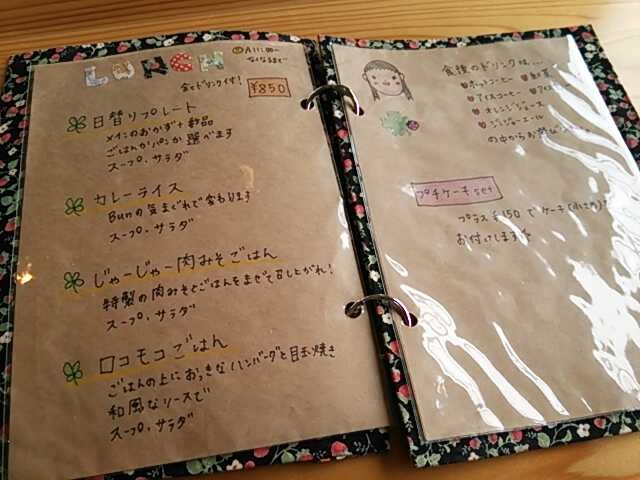 LUNCH
A11:00〜
なくなるまで
全てドリンク付!
¥850
日替りプレート
メインのおかず+数品
ごはんかパンか選べます
スープ・サラダ
カレーライス
Bunの気まぐれで変わります
スープ・サラダ
じゃーじゃー肉みそごはん
特製の肉みそとごはんをまぜて召し上がれ!
スープ・サラダ
ロコモコごはん
ごはんの上におっきなハンバーグと目玉焼き
和風なソースで
スープ・サラダ
食後のドリンクは...
ホットコーヒー
アイスコーヒー
オレンジジュース
ジンジャーエール
の中からお選び
プチケーキset
プラス¥150でケーキ(小さめ)
お付けします